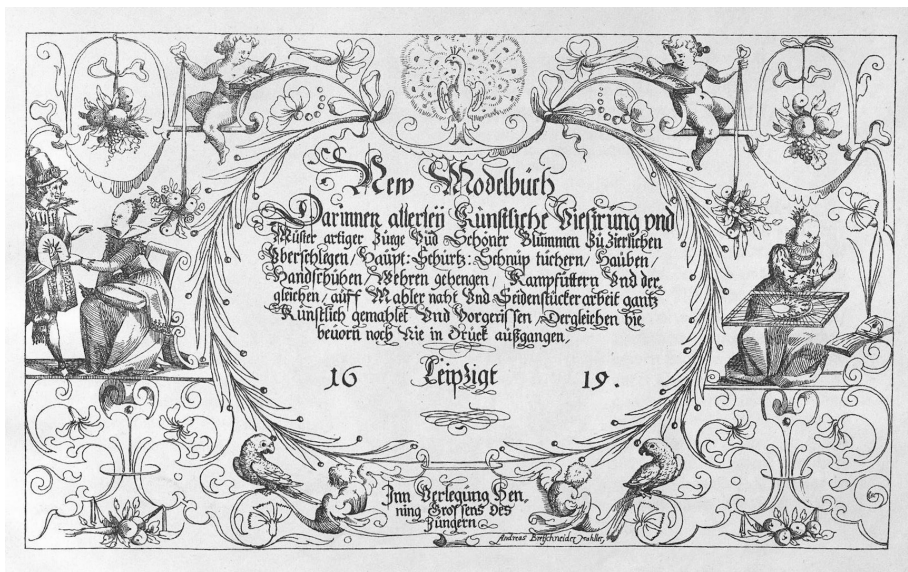 New Modelbuch
Darinnen allerley Künstliche Viesirung vnd
Müster artiger Züge Vnd Schöner Blümmen Zü zierlichen
Vberschlegen / Haüpt: Schürtz: Schnüp tüchern / Haüben /
Handschühen / Wehren gehengen / Kampfüttern Vnd der
gleichen / auff Mahler naht Vnd Seidenstücker arbeit gantz
Künstlich gemahlet Vnd Vorgerissen / Dergleichen hie
beuorn noch Nie in Drück außgangen /
16 Leipzigk 19.
Inn Verlegung Hen,
ning Grossens des
Jüngern
Andreas Bretschneider Mahller,